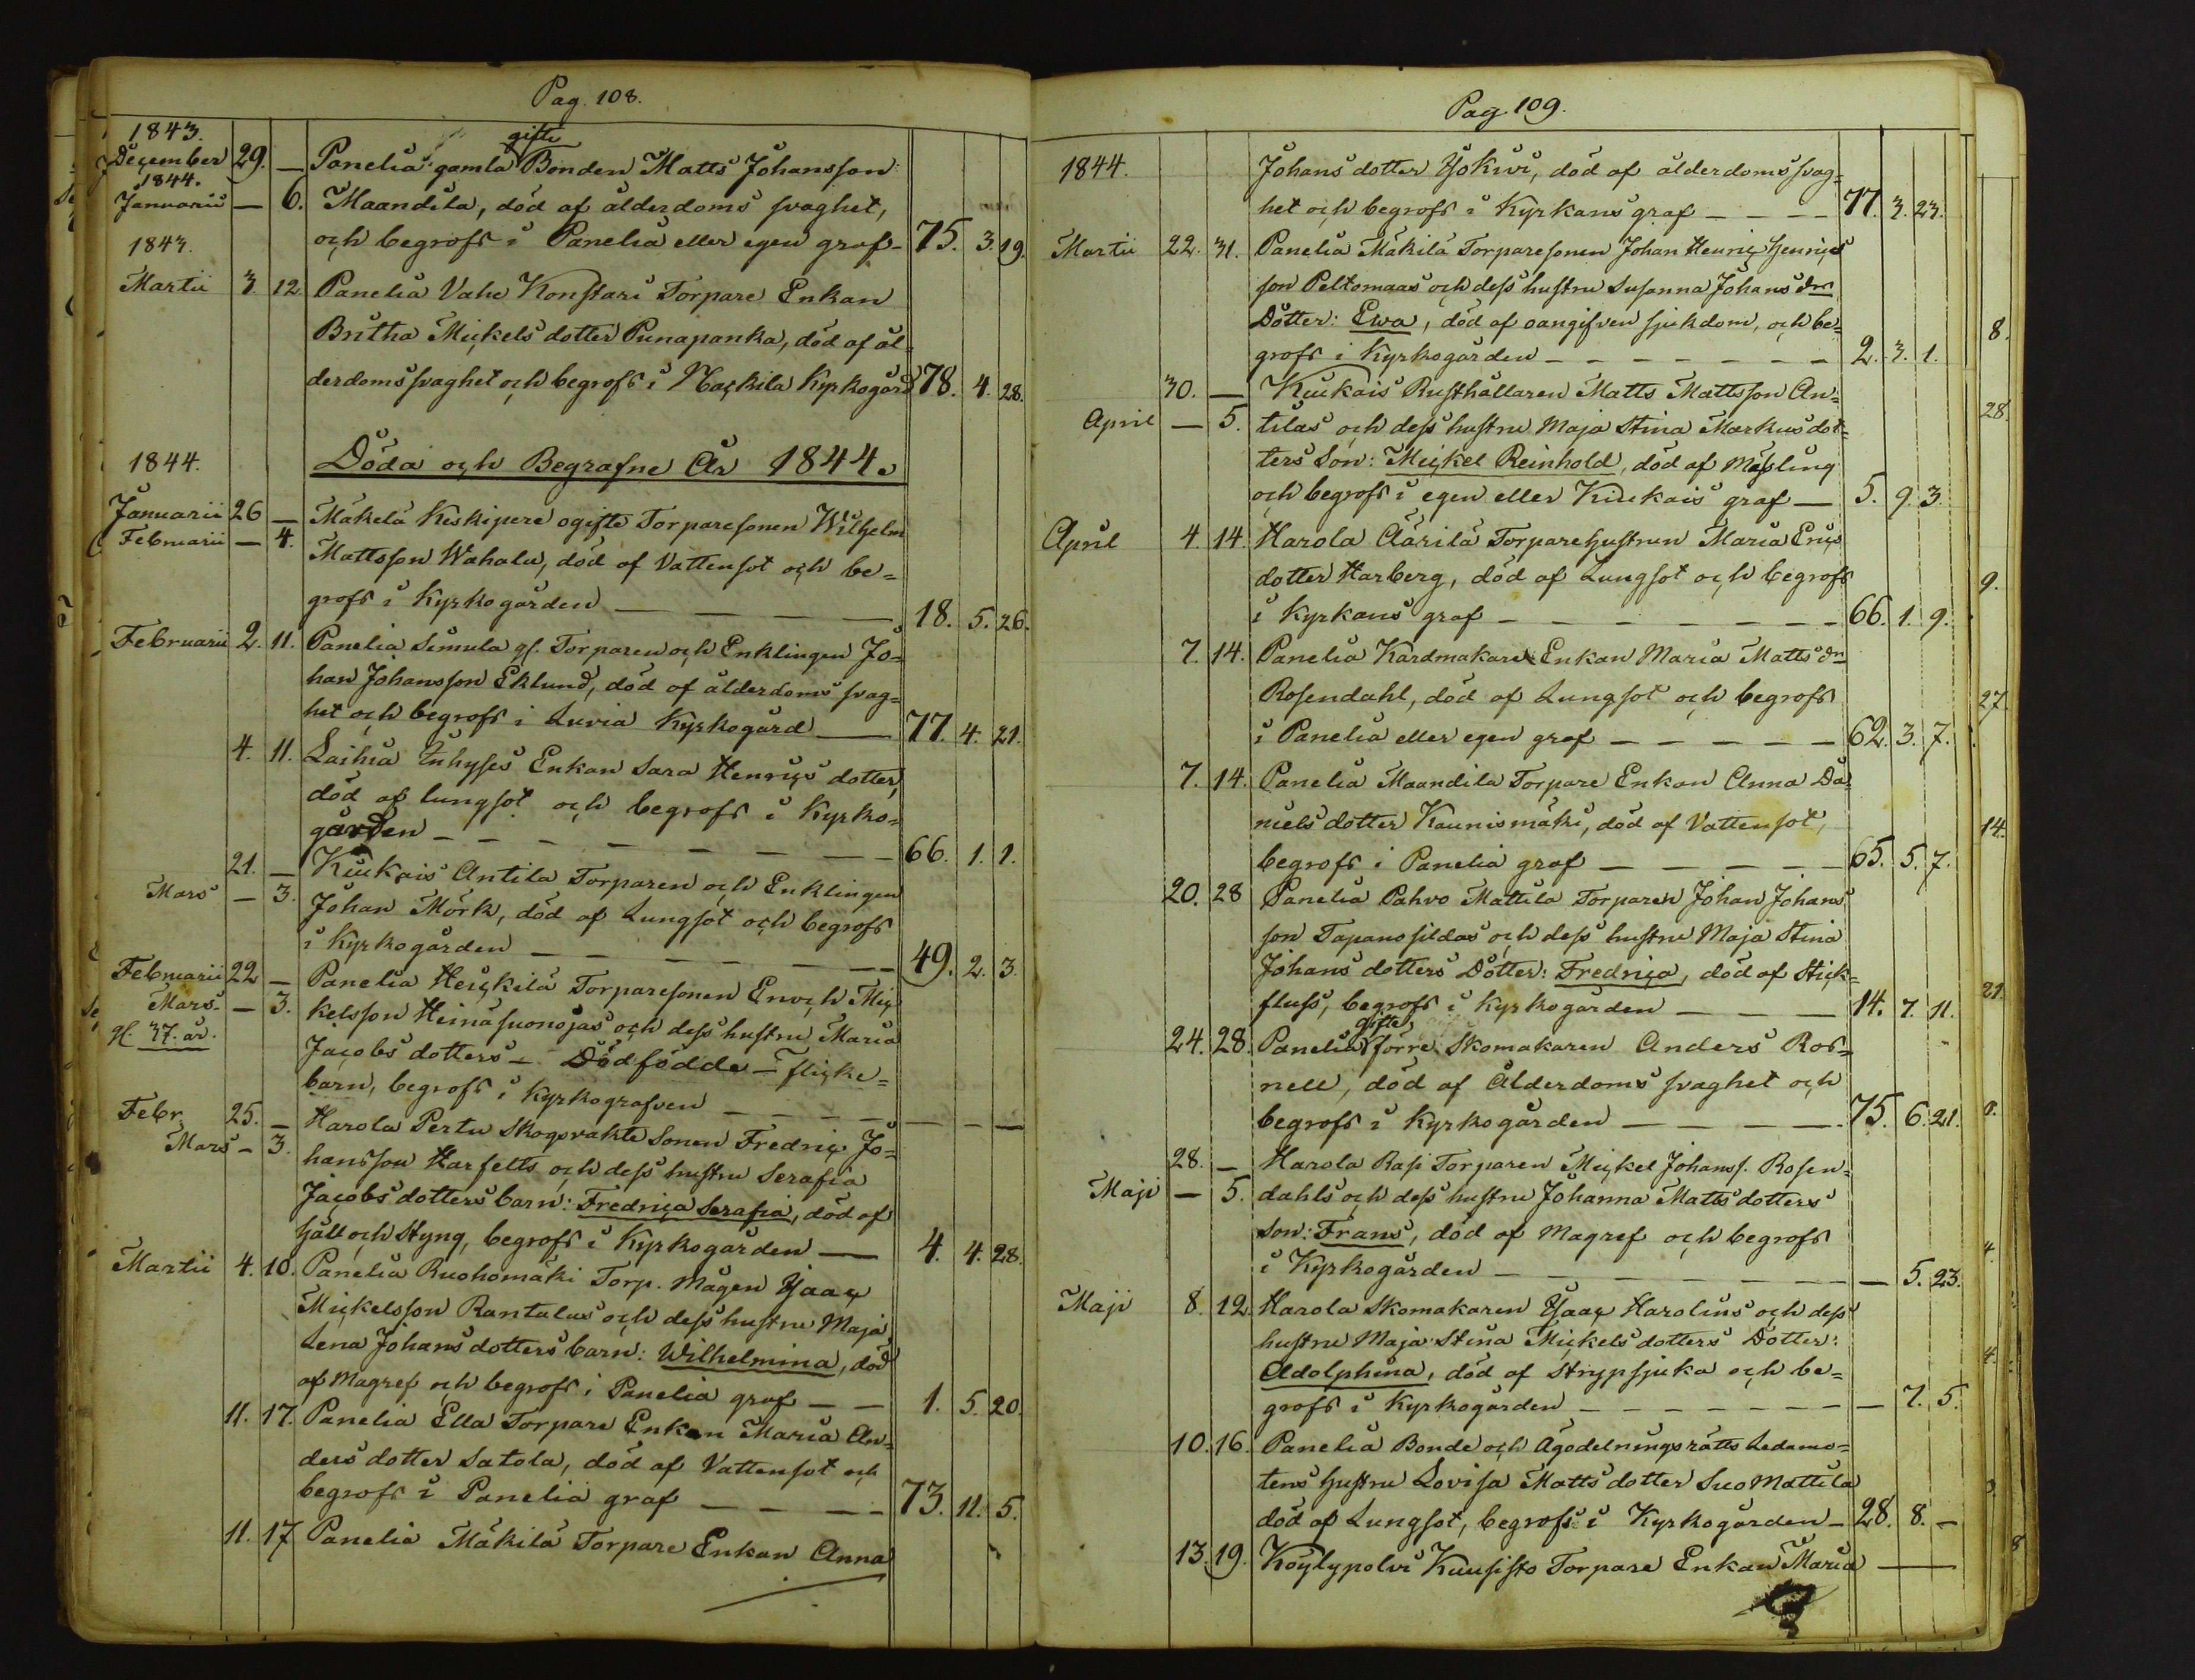 Pag. 108.
1843.
gifte
December 29. — Panelia gamla Bonden Matts Johansson
1844.
Januarii — 6. Maandila, död af ålderdoms svaghet,
1843.
och begrofs i Panelia eller egen graf - 75. 3. 19.
Martii 3. 12. Panelia Vahe Konstari Torpare Enkan
Britha Mickels dotter Punapanka, död af ål-
derdoms svaghet och begrofs i Nackila Kyrkogård 78. 4. 28.
1844. Döda och Begrafne År 1844.
Januarii 26 — Mäkelä Keskipere ogifte Torparesonen Wilhelm
Februarii — 4. Mattsson Wahala, död af Vattensot och be=
grofs i Kyrkogården — — — 18. 5. 26.
Februarii 2. 11. Panelia Simula gl. Torparen och Enklingen Jo=
han Johansson Eklund, död af ålderdoms svag=
het och begrofs i Luvia Kyrkogård — 77. 4. 21.
4. 11. Laihia Inhyses Enkan Sara Henrics dotter,
död af lungsot och begrofs i Kyrko=
gården — — — — — — — 66. 1. 1.
21. — Kiukais Antila Torparen och Enklingen
Mars — 3. Johan Mörk, död af Lungsot och begrofs
i Kyrkogården — — — — — — 49. 2. 3.
Februarii 22 — Panelia Heickilä Torparesonen Enoch Mic
Mars. — 3. kelsson Heinäsuonojas och dess hustru Maria
gl. 37. år. Jacobs dotters — Dödfödde — flicke=
barn, begrofs i Kyrkografven — — — — — — —
Febr. 25. — Harola Pertu Skogvakte Sonen Fredric Jo=
Mars — 3. hansson Harfelts och dess hustru Serafia
Jacobs dotters barn: Fredrica Serafia, död af
håll och styng, begrofs i Kyrkogården — 4. 4. 28.
Martii 4. 10. Panelia Ruohomäki Torp. Mågen Isaac
Mickelsson Rantalas och dess hustru Maja
Lena Johans dotters barn: Wilhelmina, död
af Magref och begrofs i Panelia graf — — 1. 5. 20.
11. 17. Panelia Ella Torpare Enkan Maria An=
ders dotter Satola, död af Vattensot och
begrofs i Panelia graf — — — — 73. 11. 5.
11. 17 Panelia Mäkilä Torpare Enkan Anna
Pag. 109.
1844. Johans dotter Isokivi, död af ålderdoms svag=
het och begrofs i Kyrkans graf — — — — 77. 3. 23.
Martii 22. 31. Panelia Mäkilä Torparesonen Johan Henric Henrics
son Peltomaas och dess hustru Susanna Johans drs
Dotter: Ewa, död af oangifven sjukdom, och be=
grofs i Kyrkogården — — — — — — — 2. 3. 1.
30. — Kiukais Rusthållaren Matts Mattsson An=
April — 5. tilas och dess hustru Maja Stina Markus dot=
ters Son: Mickel Reinhold, död af Mässling
och begrofs i egen eller Kiukais graf — 5. 9. 3.
April 4. 14. Harola Äärilä Torparehustrun Maria Erics
dotter Harberg, död af Lungsot och begrofs
i Kyrkans graf — — — — — — — — 66. 1. 9.
7. 14. Panelia Kardmakare Enkan Maria Matts dr
Rosendahl, död af Lungsot och begrofs
i Panelia eller egen graf — — — — — 62. 3. 7.
7. 14. Panelia Maandila Torpare Enkan Anna Da
niels dotter Kaunismäki, död af Vattensot,
begrofs i Panelia graf — — — — — 65. 5. 7.
20. 28 Panelia Pahvo Mattila Torparen Johan Johans
son Tapanosildas och dess hustru Maja Stina
Johans dotters Dotter: Fredrica, död af Stick=
fluss, begrofs i Kyrkogården — — — 14. 7. 11.
gifte
24. 28. Panelia förre Skomakaren Anders Ros=
nell, död af Ålderdoms svaghet och
begrofs i Kyrkogården — — — — 75. 6. 21.
28. — Harola Rasi Torparen Mickel Johanss. Rosen=
Maji — 5. dahls och dess hustru Johanna Matts dotters
Son: Frans, död af Magref och begrofs
i Kyrkogården — — — — — — — — 5. 23.
Maji 8. 12. Harola Skomakaren Isaac Harolins och dess
hustru Maja Stina Mickels dotters Dotter:
Adolphina, död af Strypsjuka och be=
grofs i Kyrkogården — — — — — — — — 7. 5.
10. 16. Panelia Bonde och Ägodelningsrätts Ledamo=
tens hustru Lovisa Matts dotter Suo Mattila
död af Lungsot, begrofs i Kyrkogården — 28. 8. —
13. 19. Köylypolvi Kuusisto Torpare Enkan Maria —
8.
28.
9.
27.
14.
21.
4.
4.
3.
8